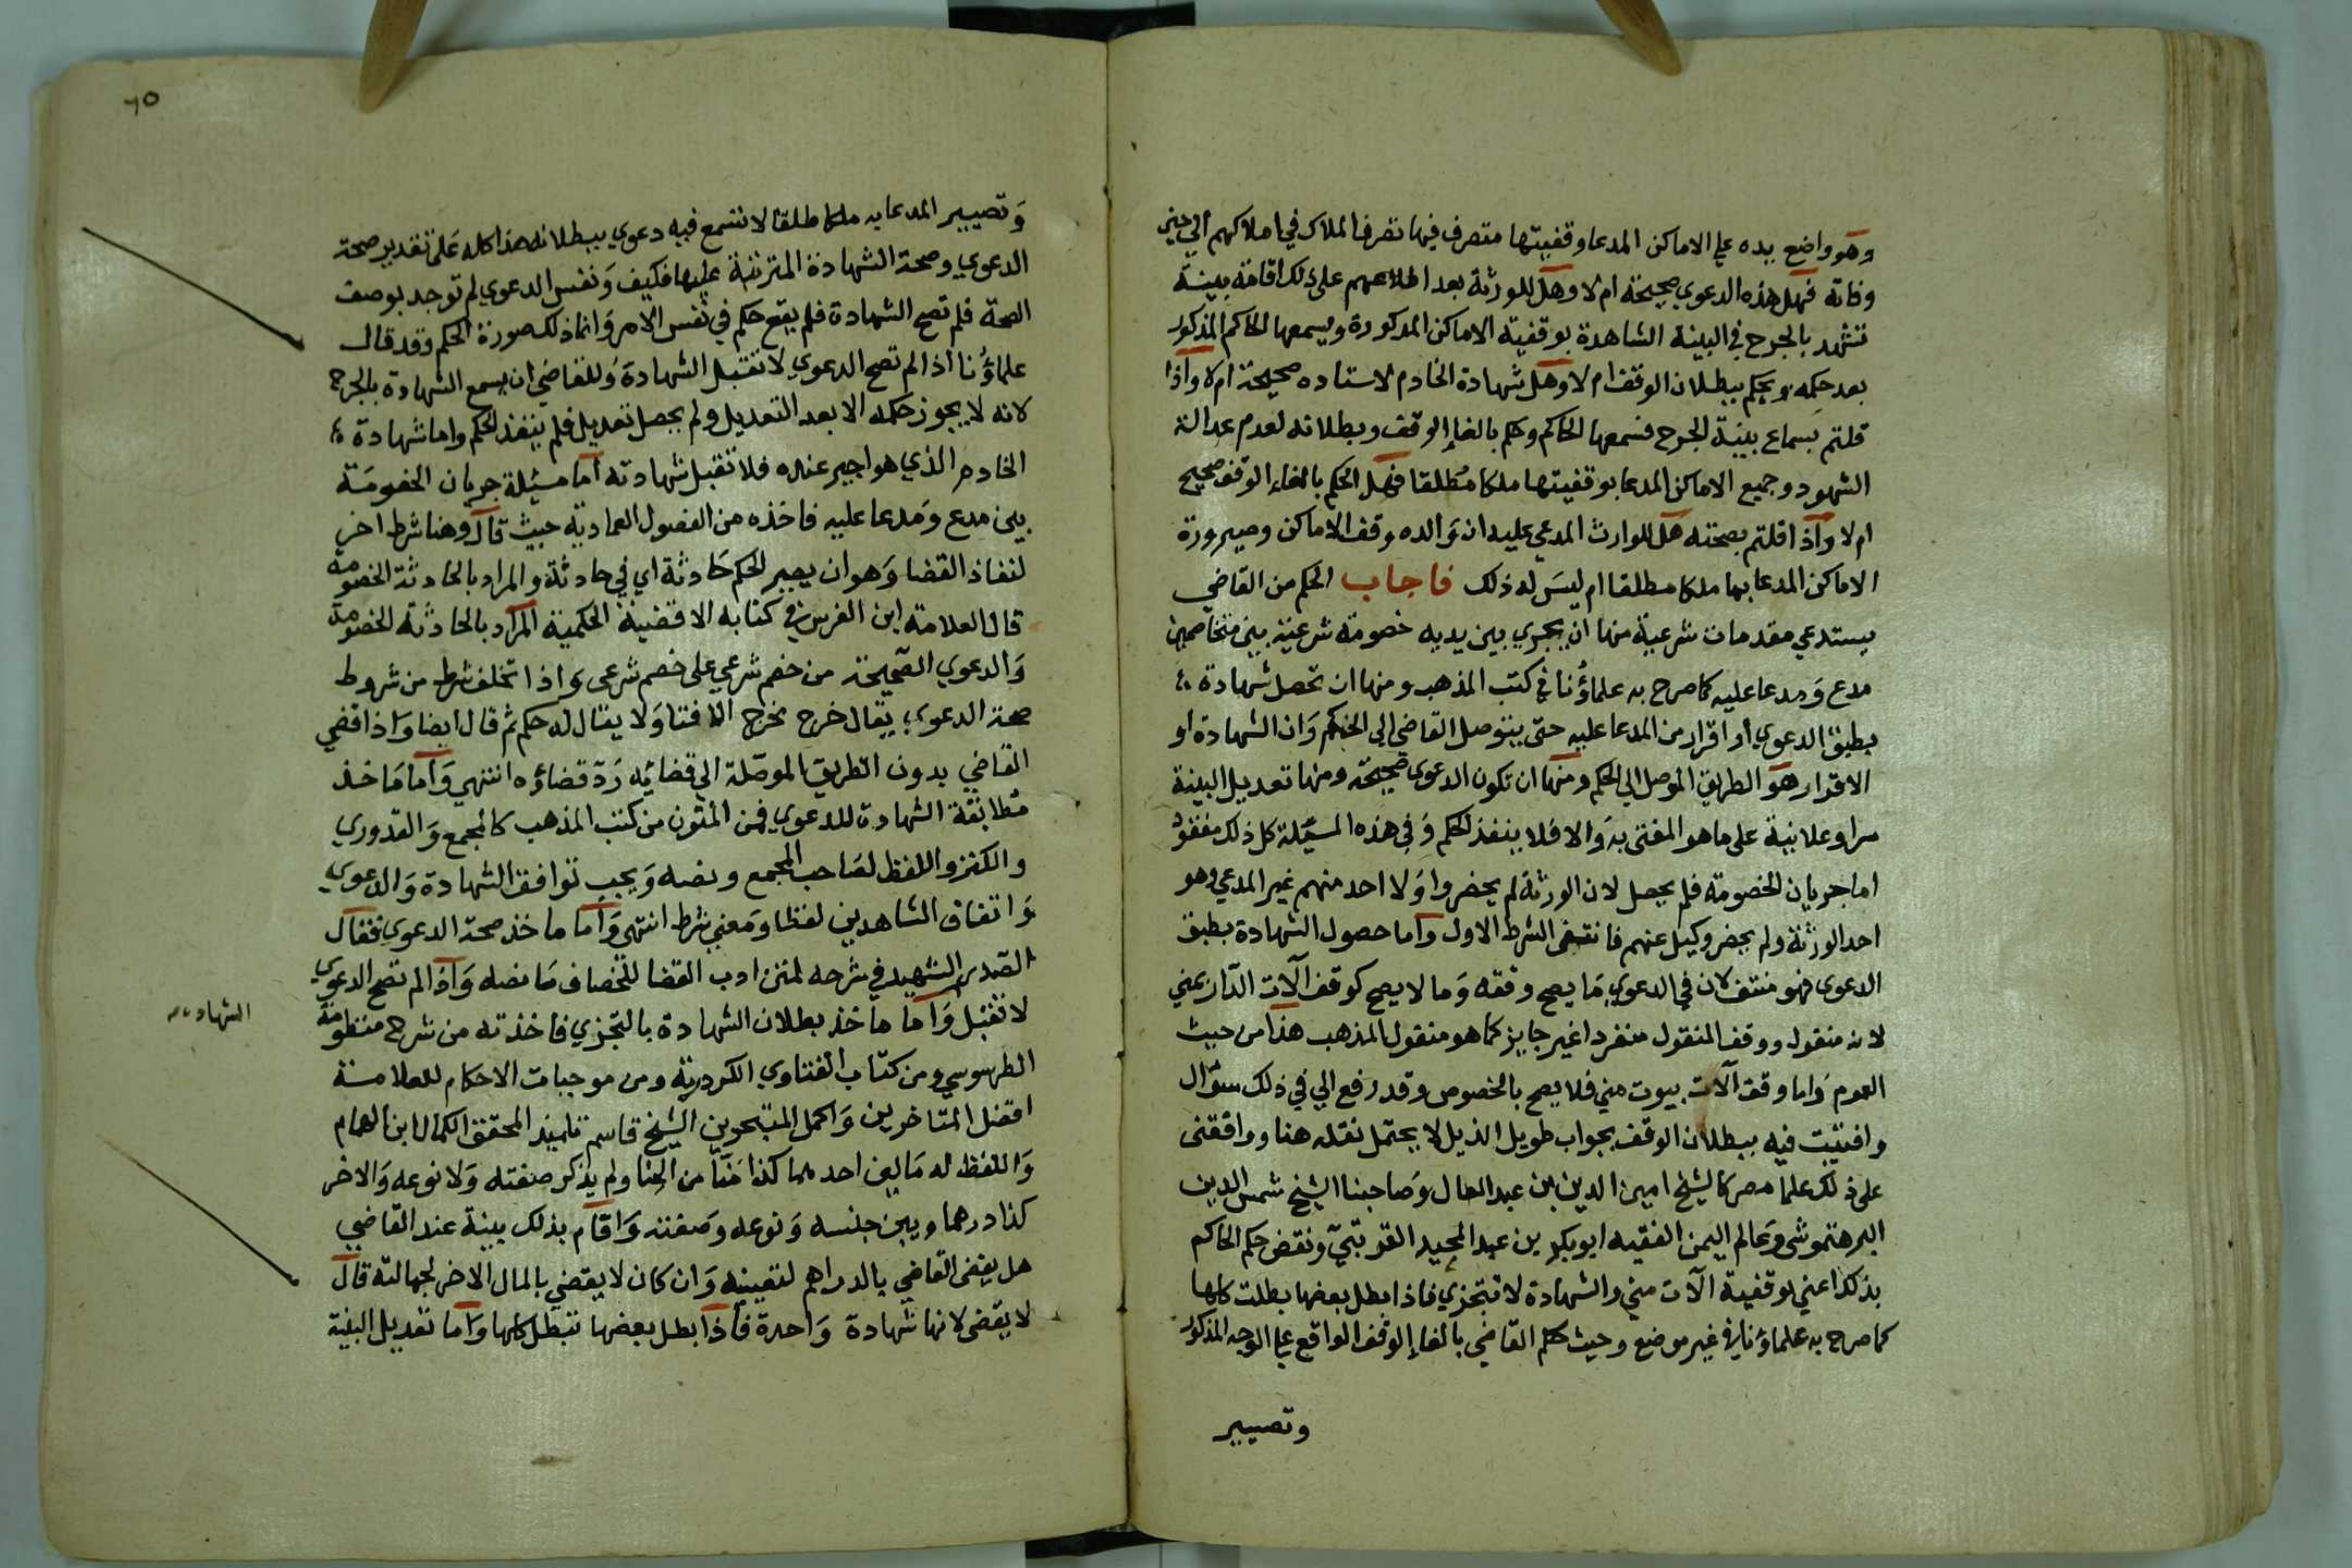 وهو واضع يده على الاماكن المدعا وقفيتها متصرف فيها تصرف الملاك في املاكهم الى حين
وفاته فهل هذه الدعوي صحيحة ام لا وهل للورثة بعد اطلاعهم على ذلك اقامة بينة
تشهد بالجرح في البينة الشاهدة بوقفية الاماكن المذكورة ويسمعها الحاكم المذكور
بعد حكمه ويحكم ببطلان الوقف ام لا وهل شهادة الخادم لاستاده صحيحة ام لا واذا
قلتم بسماع بينة الجرح فسمعها الحاكم وحكم بالغاء الوقف وبطلانه لعدم عدالة
الشهود وجميع الاماكن المدعا بوقفيتها ملكا مطلقا فهل الحكم بالغاء الوقف صحيح
ام لا واذا قلتم بصحته هل للوارث المدعي عليه ان والده وقف الاماكن وصيرورة
الاماكن المدعا بها ملكا مطلقا ام ليس له ذلك فاجاب الحكم من القاضي
يستدعي مقدمات شرعية منها ان يجري بين يديه خصومة شرعية بين متخاصمين
مدع ومدعا عليه كما صرح به علماؤنا في كتب المذهب ومنها ان تحصل شهادة
بطبق الدعوي او اقرار من المدعا عليه حتى يتوصل القاضي الى الحكم وان الشهادة او
الاقرار هو الطريق الموصل الى الحكم ومنها ان تكون الدعوى صحيحة ومنها تعديل البينة
سرا وعلانية على ما هو المفتى به والا فلا ينفذ الحكم وفي هذه المسئلة كل ذلك مفقود
اما جريان الخصومة فلم يحصل لان الورثة لم يحضروا ولا احد منهم غير المدعي وهو
احد الورثة ولم يحضر وكيل عنهم فانتفى الشرط الاول واما حصول الشهادة بطبق
الدعوى فهو منتف لان في الدعوي ما يصح وقفه وما لا يصح كوقف آلات الدار بمني
لانه منقول ووقف المنقول منفردا غير جايز كما هو منقول المذهب هذا من حيث
العموم واما وقف آلات بيوت مني فلا يصح بالخصوص وقد رفع الي في ذلك سؤال
وافتيت فيه ببطلان الوقف بجواب طويل الذيل لا يحتمل نقله هنا ووافقنى
على ذلك علما مصر كالشيخ امين الدين بن عبد العال وصاحبنا الشيخ شمس الدين
البرهتموشى وعالم اليمن الفقيه ابو بكر بن عبد المجيد القرتبي ونقض حكم الحاكم
بذلك اعني بوقفية الآت مني والشهادة لا تتجزي فاذا بطل بعضها بطلت كلها
كما صرح به علماؤنا في غير موضع وحيث حكم القاضي بالغاء الوقف الواقع على الوجه المذكور
وتصيير
٦٥
وتصيير المدعا به ملكا طلقا لا تسمع فيه دعوي ببطلانه هذا كله على تقدير صحة
الدعوي وصحة الشهادة المترتبة عليها فكيف ونفس الدعوي لم توجد بوصف
الصحة فلم تصح الشهادة فلم يقع حكم في نفس الامر وانما ذلك صورة الحكم وقد قال
علماؤنا اذا لم تصح الدعوي لا تقبل الشهادة وللقاضي ان يسمع الشهادة بالجرح
لانه لا يجوز حكمه الا بعد التعديل ولم يحصل تعديل فلم ينفذ الحكم واما شهادة
الخادم الذي هو اجير عنده فلا تقبل شهادته اما مسئلة جريان الخصومة
بين مدع ومدعا عليه فاخذه من الفصول العمادية حيث قال وهنا شرط اخر
لنفاذ القضا وهو ان يصير الحكم حادثة اي في حادثة والمراد بالحادثة الخصومة
قال العلامة ابن الغرس في كتابه الاقضية الحكمية المراد بالحادثة الخصومة
والدعوي الصحيحة من خصم شرعي على خصم شرعى واذا تخلف شرط من شروط
صحة الدعوي يقال خرج مخرج الافتا ولا يقال له حكم ثم قال ايضا واذا قضي
القاضي بدون الطريق الموصلة الي قضائه رد قضاؤه انتهي واما ماخذ
مطابقة الشهادة للدعوي فمن المتون من كتب المذهب كالمجمع والقدوري
والكنز واللفظ لصاحب المجمع ونصه ويجب توافق الشهادة والدعوي
واتفاق الشاهدين لفظا ومعني شرط انتهى واما ماخذ صحة الدعوي فقال
الصدر الشهيد في شرحه لمتن ادب القضا للخصاف ما نصه واذا لم تصح الدعوي
لا تقبل واما ماخذ بطلان الشهادة بالتجزي فاخذته من شرح منظومة
الشهادة
الطرسوسي ومن كتاب الفتاوي الكردرية ومن موجبات الاحكام للعلامة
افضل المتاخرين واكمل المتبحرين الشيخ قاسم تلميذ المحقق الكمال ابن الهمام
واللفظ له مالين احدهما كذا منا من الحنا ولم يذكر صفته ولا نوعه والاخر
كذا درهما وبين جنسه ونوعه وصفته واقام بذلك بينة عند القاضي
هل يقضى القاضي بالدراهم لتعيينه وان كان لا يقضي بالمال الاخر لجهالته قال
لا يقضى لانها شهادة واحدة فاذا بطل بعضها تبطل كلها واما تعديل البينة